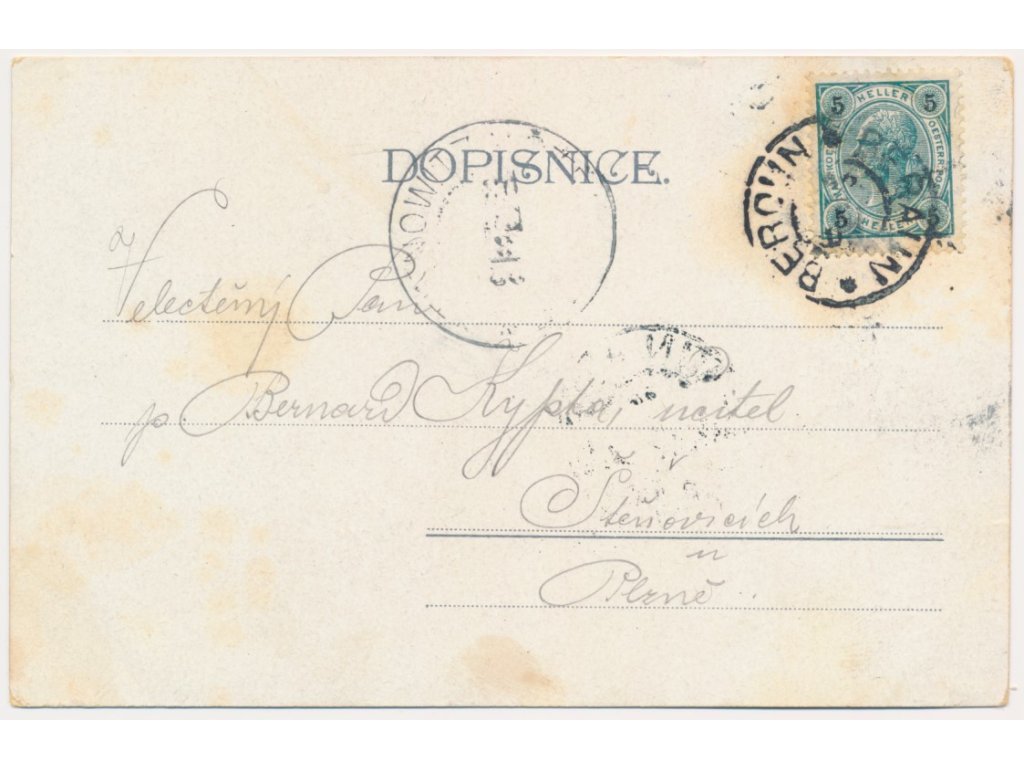 DOPISNICE.
5 HELLER 5
5 HELLER 5
BEROUN * BERAUN *
Velectěný Pan
p. Bernard Kypta, učitel
Štěnovicích
u
Plzně